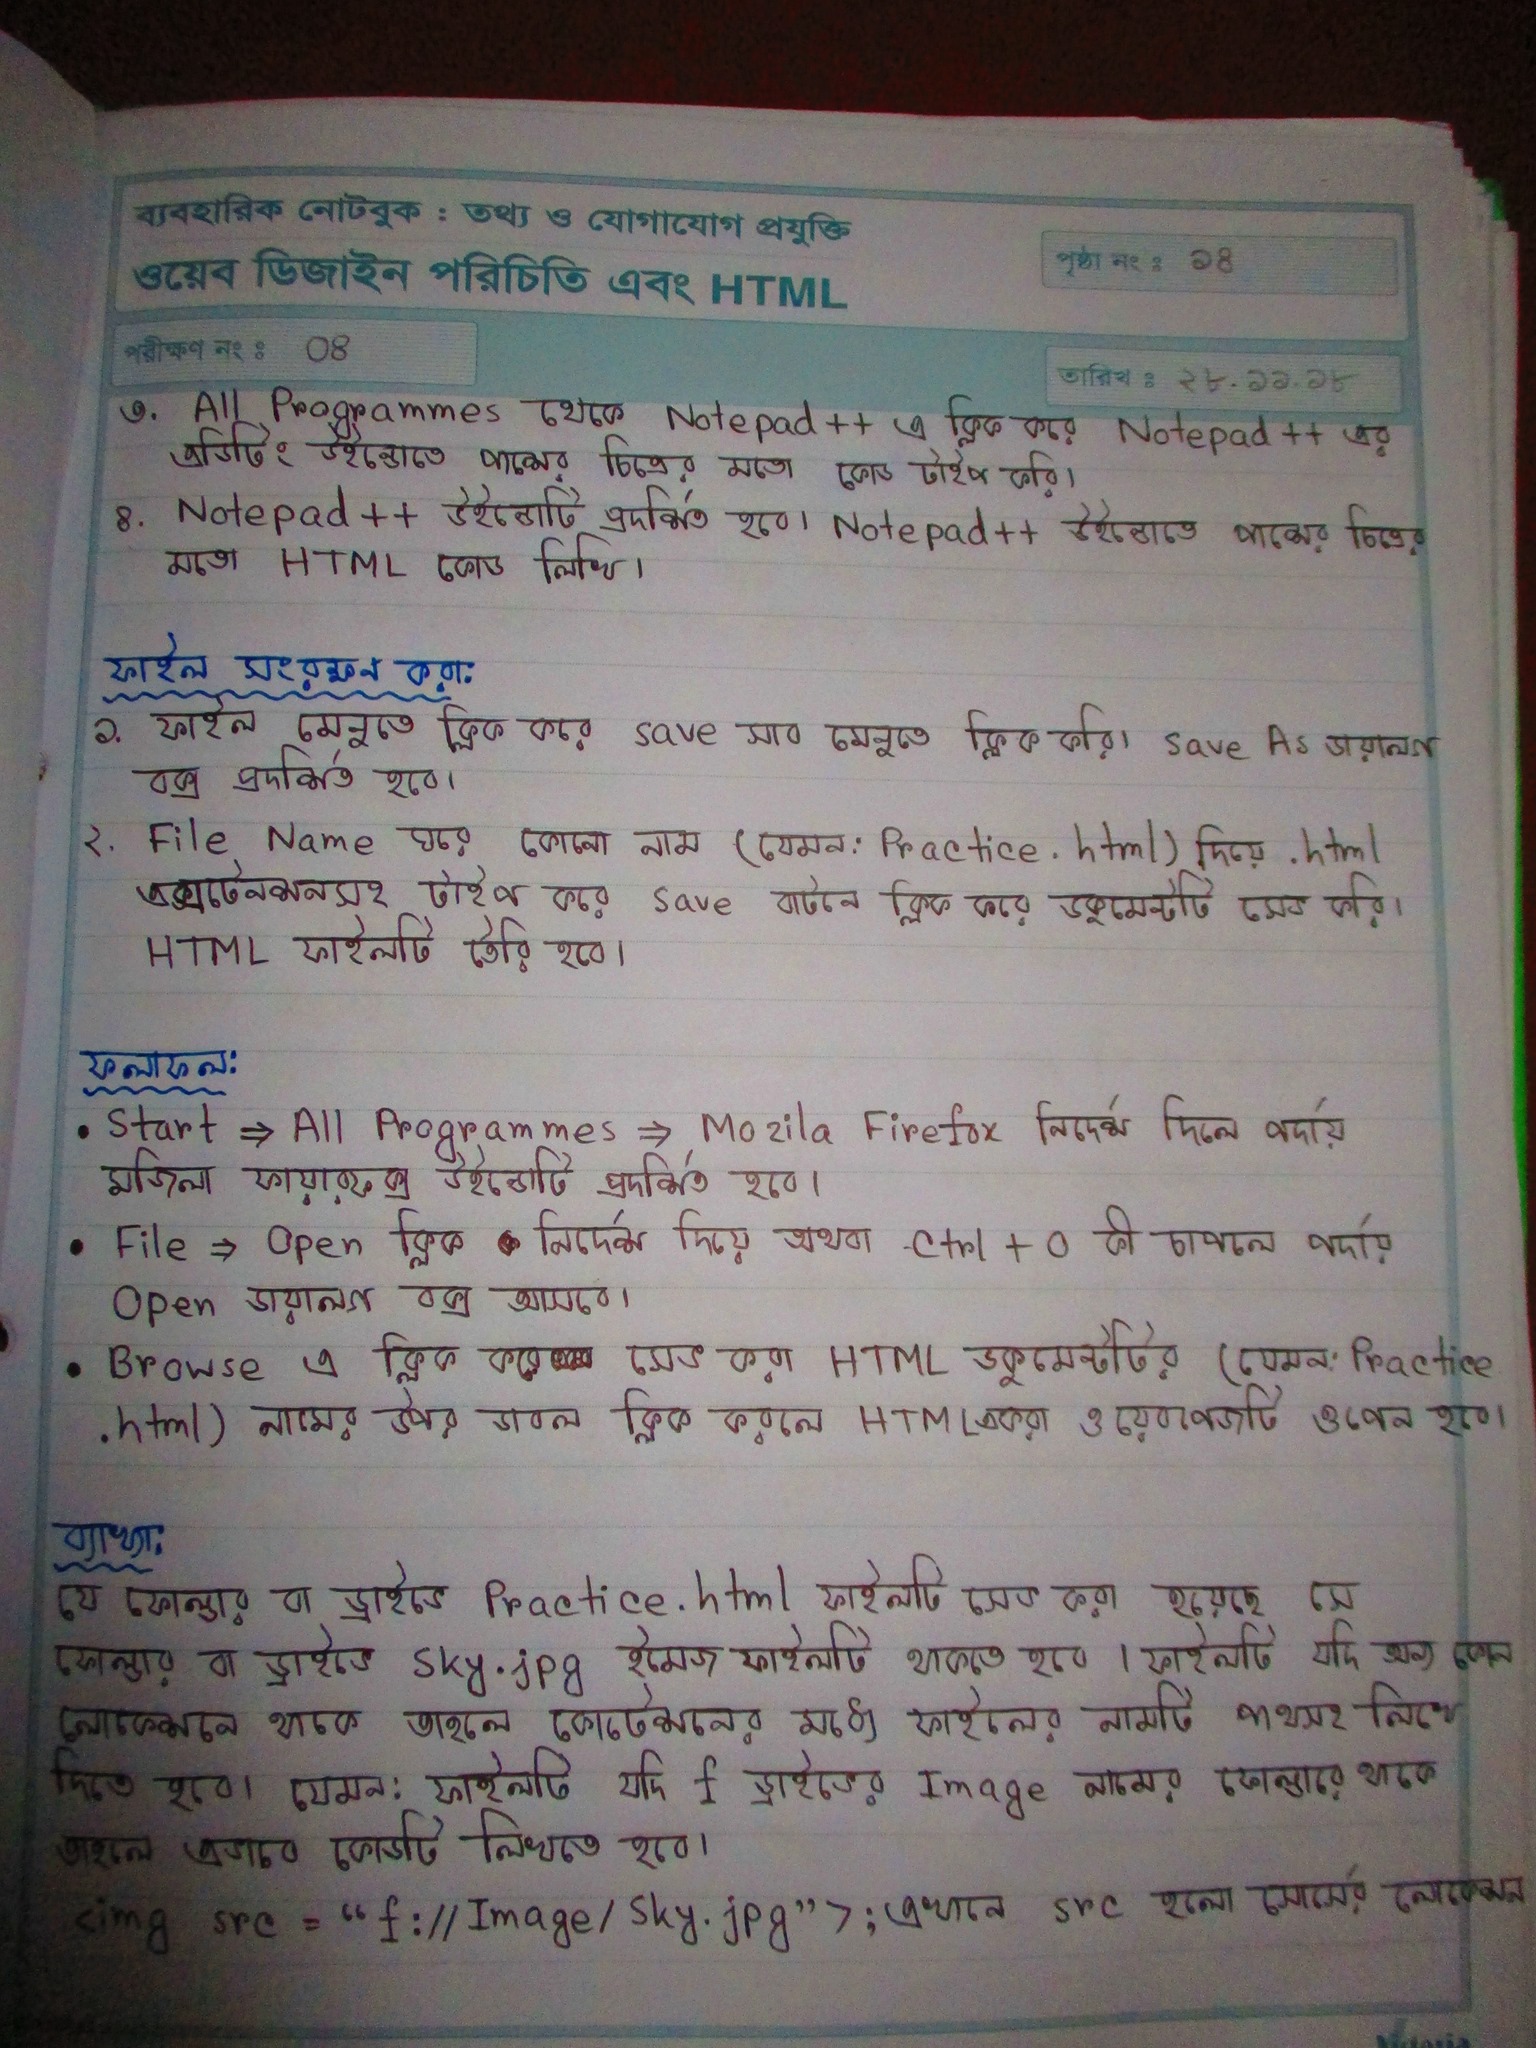 ব্যবহারিক নোটবুক : তথ্য ও যোগাযোগ প্রযুক্তি
ওয়েব ডিজাইন পরিচিতি এবং HTML
পৃষ্ঠা নং : ১৪
পরীক্ষণ নং : ০৪
তারিখ : ২৮.১১.১৮
৩. All Programmes থেকে Notepad++ এ ক্লিক করে Notepad++ এর
এডিটিং উইন্ডোতে পাশের চিত্রের মতো কোড টাইপ করি।
৪. Notepad++ উইন্ডোটি প্রদর্শিত হবে। Notepad++ উইন্ডোতে পাশের চিত্রের
মতো HTML কোড লিখি।
ফাইল সংরক্ষন করা:
১. ফাইল মেনুতে ক্লিক করে save সাব মেনুতে ক্লিক করি। save As ডায়ালগ
বক্স প্রদর্শিত হবে।
২. File Name ঘরে কোনো নাম (যেমন: Practice.html) দিয়ে .html
এক্সটেনশনসহ টাইপ করে save বাটনে ক্লিক করে ডকুমেন্টটি সেভ করি।
HTML ফাইলটি তৈরি হবে।
ফলাফল:
• Start ⇒ All Programmes ⇒ Mozila Firefox নির্দেশ দিলে পর্দায়
মজিলা ফায়ারফক্স উইন্ডোটি প্রদর্শিত হবে।
• File ⇒ Open ক্লিক নির্দেশ দিয়ে অথবা Ctrl + O কী চাপলে পর্দায়
Open ডায়ালগ বক্স আসবে।
• Browse এ ক্লিক করে সেভ করা HTML ডকুমেন্টটির (যেমন: Practice
.html) নামের উপর ডাবল ক্লিক করলে HTML একরা ওয়েবপেজটি ওপেন হবে।
ব্যাখ্যা:
যে ফোল্ডার বা ড্রাইভে Practice.html ফাইলটি সেভ করা হয়েছে সে
ফোল্ডার বা ড্রাইভে sky.jpg ইমেজ ফাইলটি থাকতে হবে । ফাইলটি যদি অন্য কোন
লোকেশনে থাকে তাহলে কোটেশনের মধ্যে ফাইলের নামটি পাথসহ লিখে
দিতে হবে। যেমন: ফাইলটি যদি f ড্রাইভের Image নামের ফোল্ডারে থাকে
তাহলে এভাবে কোডটি লিখতে হবে।
<img src = “f://Image/sky.jpg”>; এখানে src হলো সোর্সের লোকেশন